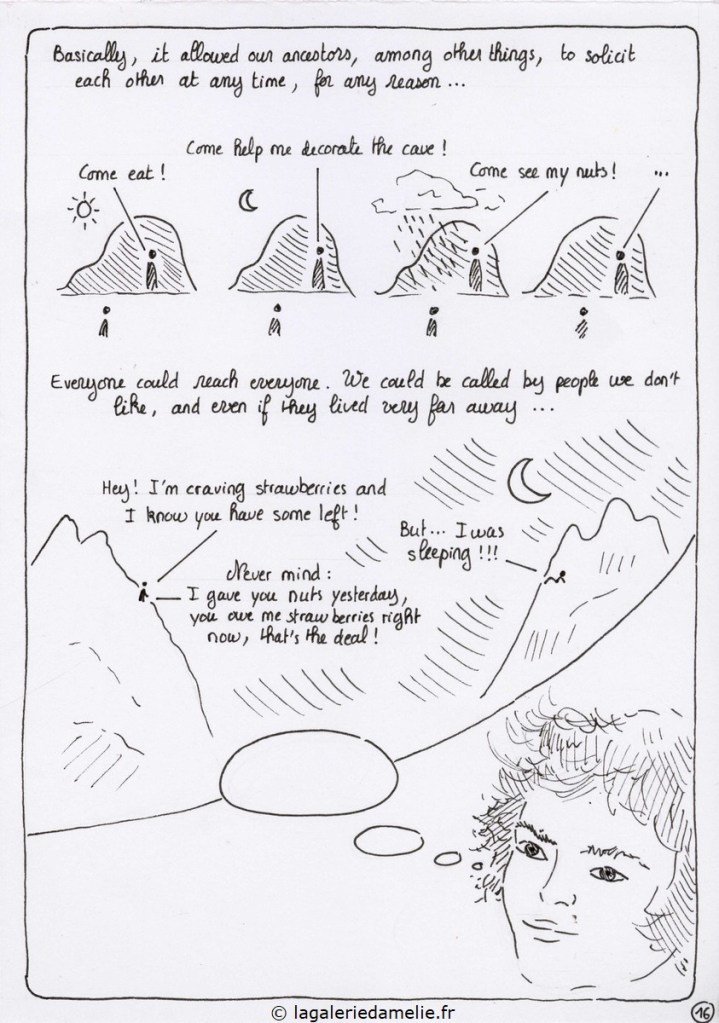 Basically, it allowed our ancestors, among other things, to solicit
each other at any time, for any reason ...
Come eat !
Come help me decorate the cave !
Come see my nuts !
...
Everyone could reach everyone. We could be called by people we don't
like, and even if they lived very far away ...
Hey! I'm craving strawberries and
I know you have some left !
But... I was
sleeping !!!
Never mind :
I gave you nuts yesterday,
you owe me strawberries right
now, that's the deal !
16
© lagaleriedamelie.fr